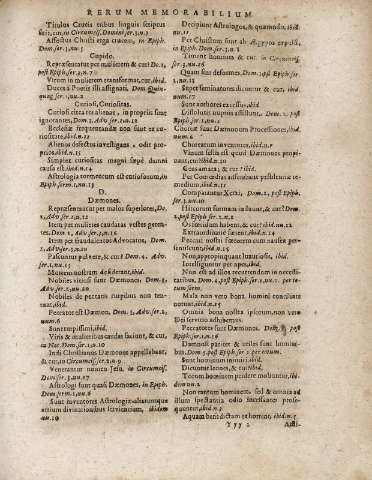 RERUM MEMORABILIUM
Titulos Crucis tribus linguis scripus
fuit, cur, in Circumcis. Domini ser.3.n.3
Affectus Christi erga crucem, in Epiph.
Dom. ser.3.nu.5
Cupido.
Repræsentatur per mulierem & cur? Do.1,
post Epiph. ser.2.nu.7
Virum in mulierem transformat, cur, ibid.
Ducenta Poetis illi assignati, Dom. Quin-
quag. ser.1.nu.2
Curiosi, Curiositas.
Curiosi circa res alienas, in propriis sunt
ignorantes, Dom.3. Adv. ser.2.n.12
Ecclesiæ frequentandæ non sunt ex cu-
riositate, ibid.n.12
Alienos defectus investigans, odit pro-
prios, ibid.n.15
Simplex curiositas magni sæpè damni
causa est, ibid.n.14
Astrologia tormentum est curiosorum, in
Epiph. serm.1.nu.13
D.
Dæmones.
Repræsentatur per malos superiores, Do.
1. Adv. ser.2.n.12
Item per mulieres caudatas vestes geren-
tes, Dom. 1, Adv. ser.3.n.12
Item per fraudatores Advocatos, Dom. 3
Adv. ser.3.nu.20
Pascuntur pulvere, & cur? Dom. 4. Adv.
ser.2.n.15
Mortem nostram desiderant, ibid.
Nobiles vitiosi sunt Dæmones, Dom.3.
Adv. ser.2.nu.20
Nobiles de peccatis turpibus non ten-
tant, ibid.
Peccator est Dæmon, Dom.3. Adv. ser.2,
num.6
Sunt turpissimi, ibid.
Viris & mulieribus caudas faciunt, & cur,
in Nat. Dom. ser.1.n.10
Indi Christianos Dæmones appellabant,
& cur, in Circumcis. ser.2.n.9
Venerantur nomen Jesu, in Circumcis.
Dom. ser.3.nu.17
Astrologi sunt quasi Dæmones, in Epiph.
Dom. serm.1.nu.6
Sunt inventores Astrologiæ aliarumque
artium divinationibus servientium, ibidem
nu.19
Decipiunt Astrologos, & quomodo, ibid.
nu.11
Per Christum sunt ab Ægypto expulsi,
in Epiph. Dom. ser.3.n.1
Timent hominem & cur? in Circumcis.
ser.2.n.16
Quam sint deformes, Dom.1. post Epiph.
ser.1.nu.16
Superseminatores dicuntur, & cur? ibid.
nu.2
Sunt authores exclusi, ibid.
Dissolutis nuptiis assistunt, Dom.2. post
Epiph. ser.2.nu.1
Choreæ sunt Dæmonum Processiones, ibid.
num.6
Chorearum inventores, ibid.
Vinum festis est quod Dæmones propi-
nant, cur? ibid.n.20
Eos amaras, & cur? ibid
Per Comœdias asserebant pestilentiæ re-
medium, ibid.n.25
Comparantur Xerxi, Dom. 2, post Epiph.
ser.3.nu.10
Hircorum formam induunt, & cur? Dom.
2.post Epiph. ser.2.n.2
Osculandum habent, & cur? ibid.n.12
Extraordinariè fœtent, ibid.n.14
Peccati nostri fœtorem cum nausea per-
sentiunt, ibid.
Non appropinquant luxuriosis, ibid.
Intelliguntur per apes, ibid.
Non est ad illos recurrendum in necessi-
tatibus, Dom.4. post Epiph. ser.2. per to-
tum serm.
Mala non vero bona homini conciliare
norunt, ibid.n.15
Omnia bona nostra ipsorum, non vero
Dei servitio adhibemus.
Peccatores sunt Dæmones, Dom. 5. post
Epiph. ser.1.n.16
Dæmones pariter & triles sunt homini-
bus, Dom.5.post Epiph. ser.2. per totum.
Sunt hominum inimici, ibid.
Dicuntur leones, & cur? ibid.
Totum hominem perdere moliuntur, ibid.
num.2
Non tantum hominem, sed & omnia ad
illum spectantia odio incessanter prose-
quuntur, ibid.n.3
Aquam benedictam exhorrent, ibid.n.5
Yyy 2 Asti-